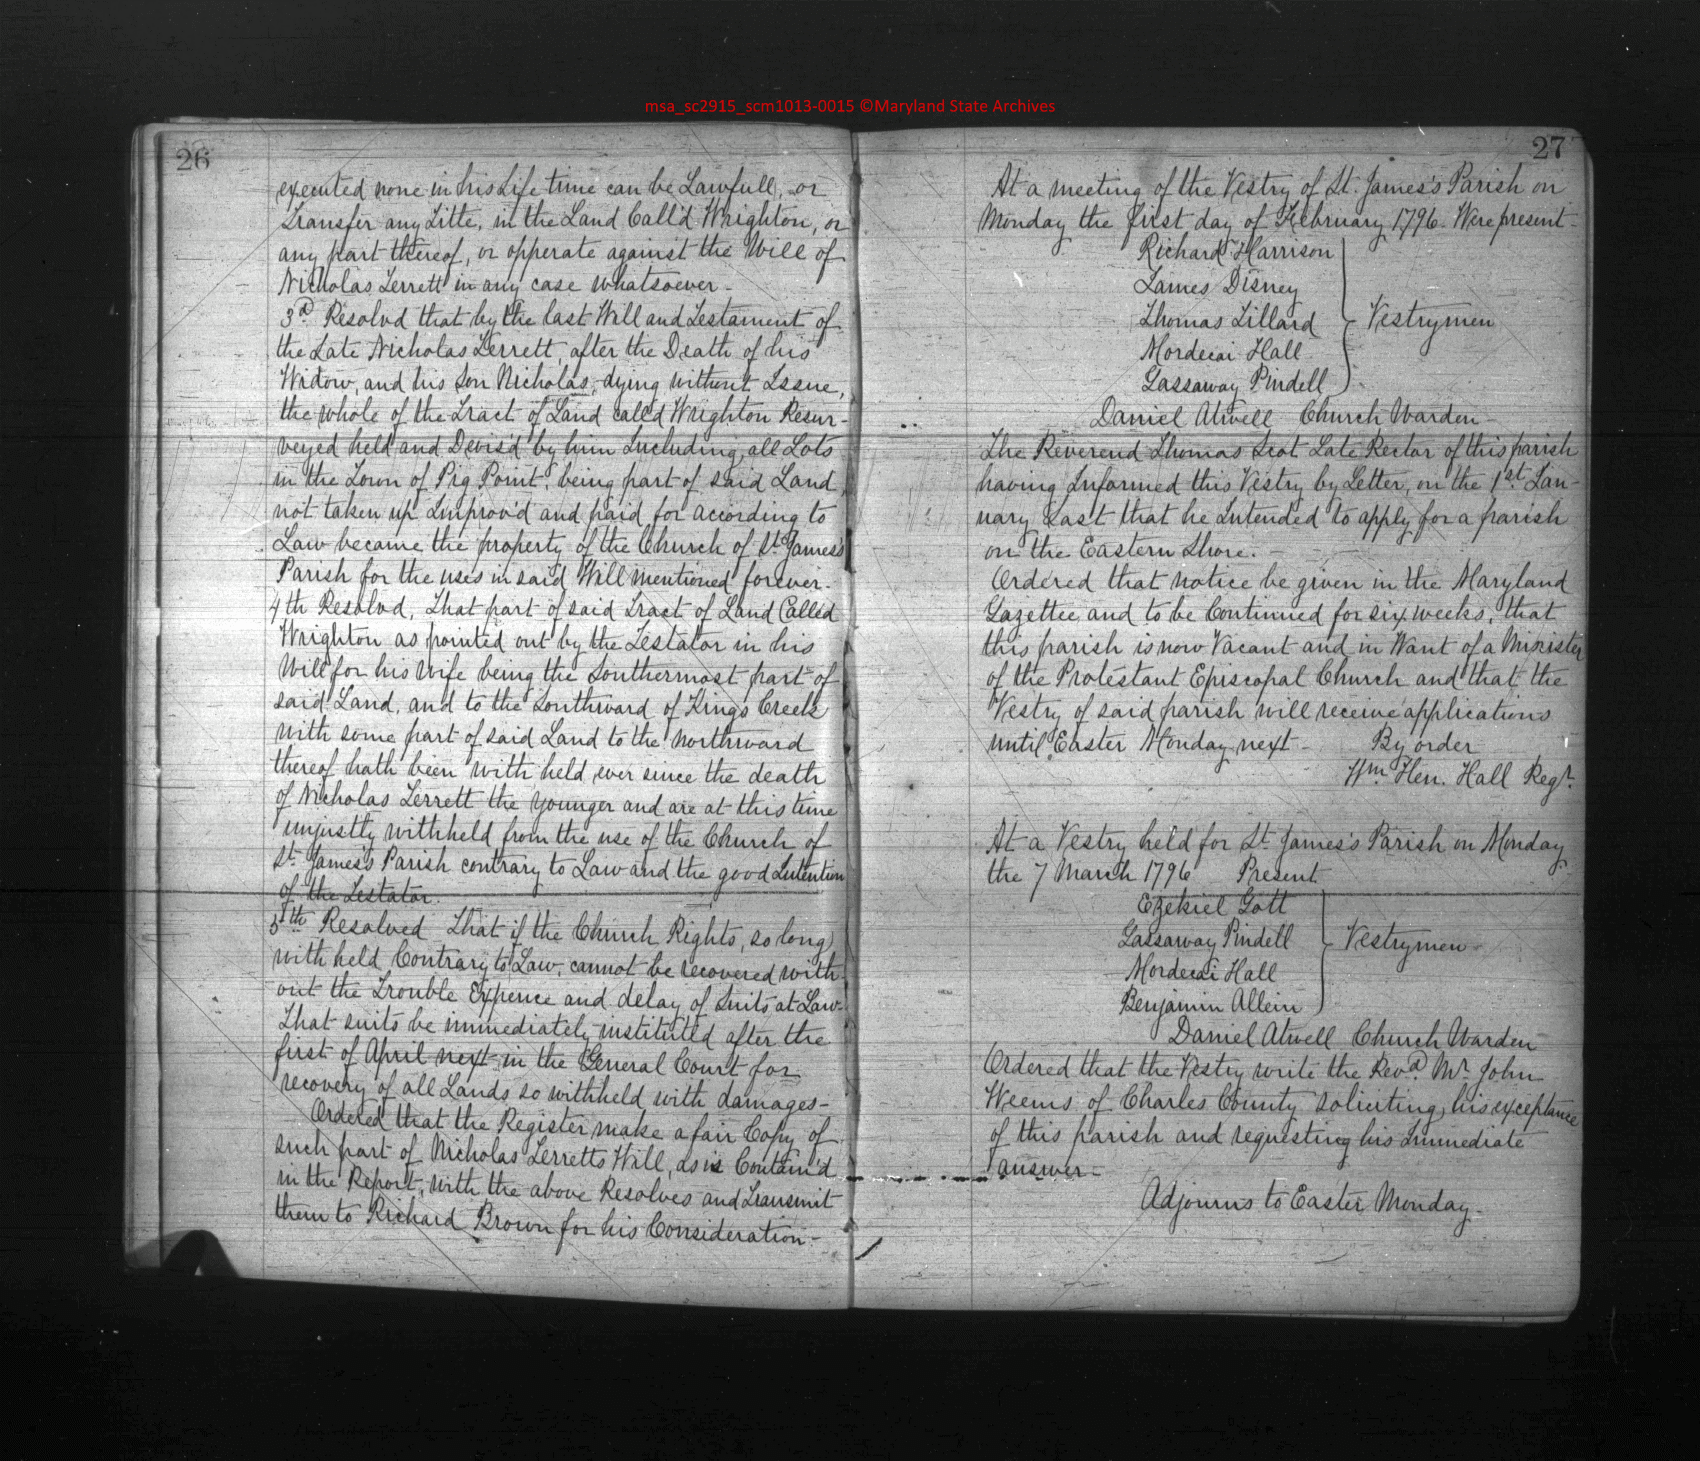 msa_sc2915_scm1013-0015 ©Maryland State Archives
26
executed none in his Life time can be Lawfull, or
Transfer any Title, in the Land Call'd Wrighton, or
any part thereof, or opperate against the Will of
Nicholas Terrett in any case whatsoever-
3d Resolvd that by the last Will and Testament of
the Late Nicholas Terrett, after the Death of his
Widow, and his Son Nicholas, dying without Issue,
the whole of the Tract of Land calld Wrighton Resur-
veyed held and Devis'd by him Including all Lots
in the Town of Pig Point, being part of said Land,
not taken up Improv'd and paid for according to
Law became the property of the Church of St James's
Parish for the uses in said Will mentioned forever.
4th Resolvd, That part of said Tract of Land Called
Wrighton as pointed out by the Testator in his
Will for his Wife being the Southermost part of
said Land, and to the Southward of Kings Creek
with some part of said Land to the Northward
thereof hath been with held ever since the death
of Nicholas Terrett the younger and are at this time
unjustly withheld from the use of the Church of
St James's Parish contrary to Law and the good Intention
of the Testator.
5th Resolved That if the Church Rights, so long
with held Contrary to Law, cannot be recovered with-
out the Trouble Expence and delay of Suits at Law-
That suits be immediately instituted after the
first of April next in the General Court for
recovery of all Lands so withheld with damages-
Ordered that the Register make a fair Copy of
such part of Nicholas Terretts Will, as is Contain'd
in the Report, with the above Resolves and Transmit
them to Richard Brown for his Consideration-
27
At a meeting of the Vestry of St. James's Parish on
Monday the first day of February 1796. Were present-
Richard Harrison
James Disney
Thomas Tillard
Vestrymen
Mordecai Hall
Gassaway Pindell
Daniel Atwell Church Warden-
The Reverend Thomas Scot Late Rector of this parish
having Informed this Vestry by Letter, on the 1st Jan-
uary Last that he Intended to apply for a parish
on the Eastern Shore.-
Ordered that notice be given in the Maryland
Gazettee and to be Continued for six weeks, that
this parish is now Vacant and in Want of a Minister
of the Protestant Episcopal Church and that the
Vestry of said parish will receive applications
until Easter Monday next- By order
Wm Hen. Hall Regr.
At a Vestry held for St James's Parish on Monday
the 7 March 1796 Present
Ezekiel Gott
Gassaway Pindell
Vestrymen-
Mordecai Hall
Benjamin Allein
Daniel Atwell Church Warden
Ordered that the Vestry write the Revd. Mr John
Weems of Charles County soliciting his exceptance
of this parish and requesting his immediate
answer-
Adjourns to Easter Monday-